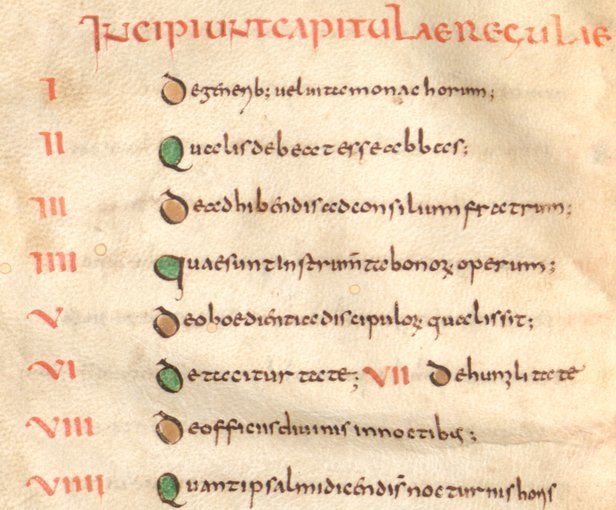 INCIPIUNT CAPITULAE REGULAE
I De geñeꝛib; vel vita monachorum;
II Qualis debeat esse abbas;
III De adhibendis ad consilium fratrum;
IIII Quae sunt instrum̄ta bonoꝝ operum;
V De oboedientia discipuloꝝ qualis sit;
VI De taciturtate; VII De humilitate
VIII De officiis divinis in noctibus;
VIIII Quanti psalmi dicendi s̄ nocturnis horis